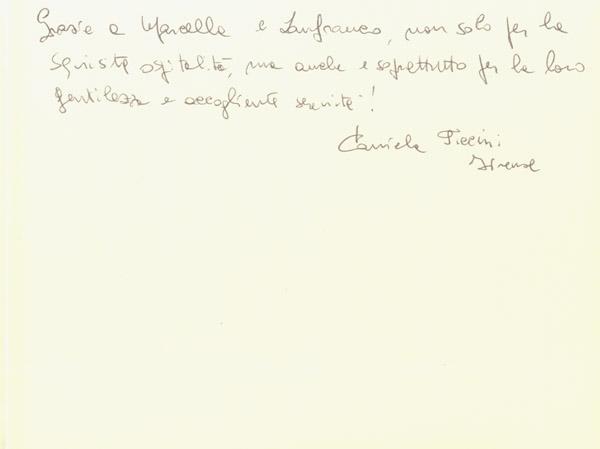 Grazie a Marcella e Lanfranco, non solo per la
squisita ospitalità, ma anche e soprattutto per la loro
gentilezza e accogliente serenità!
Daniela Piccini
Firenze